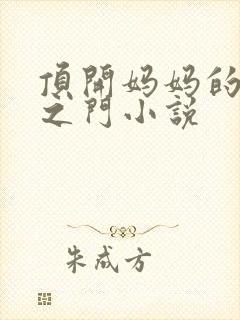 頂開妈妈的
之門小説
朱成方